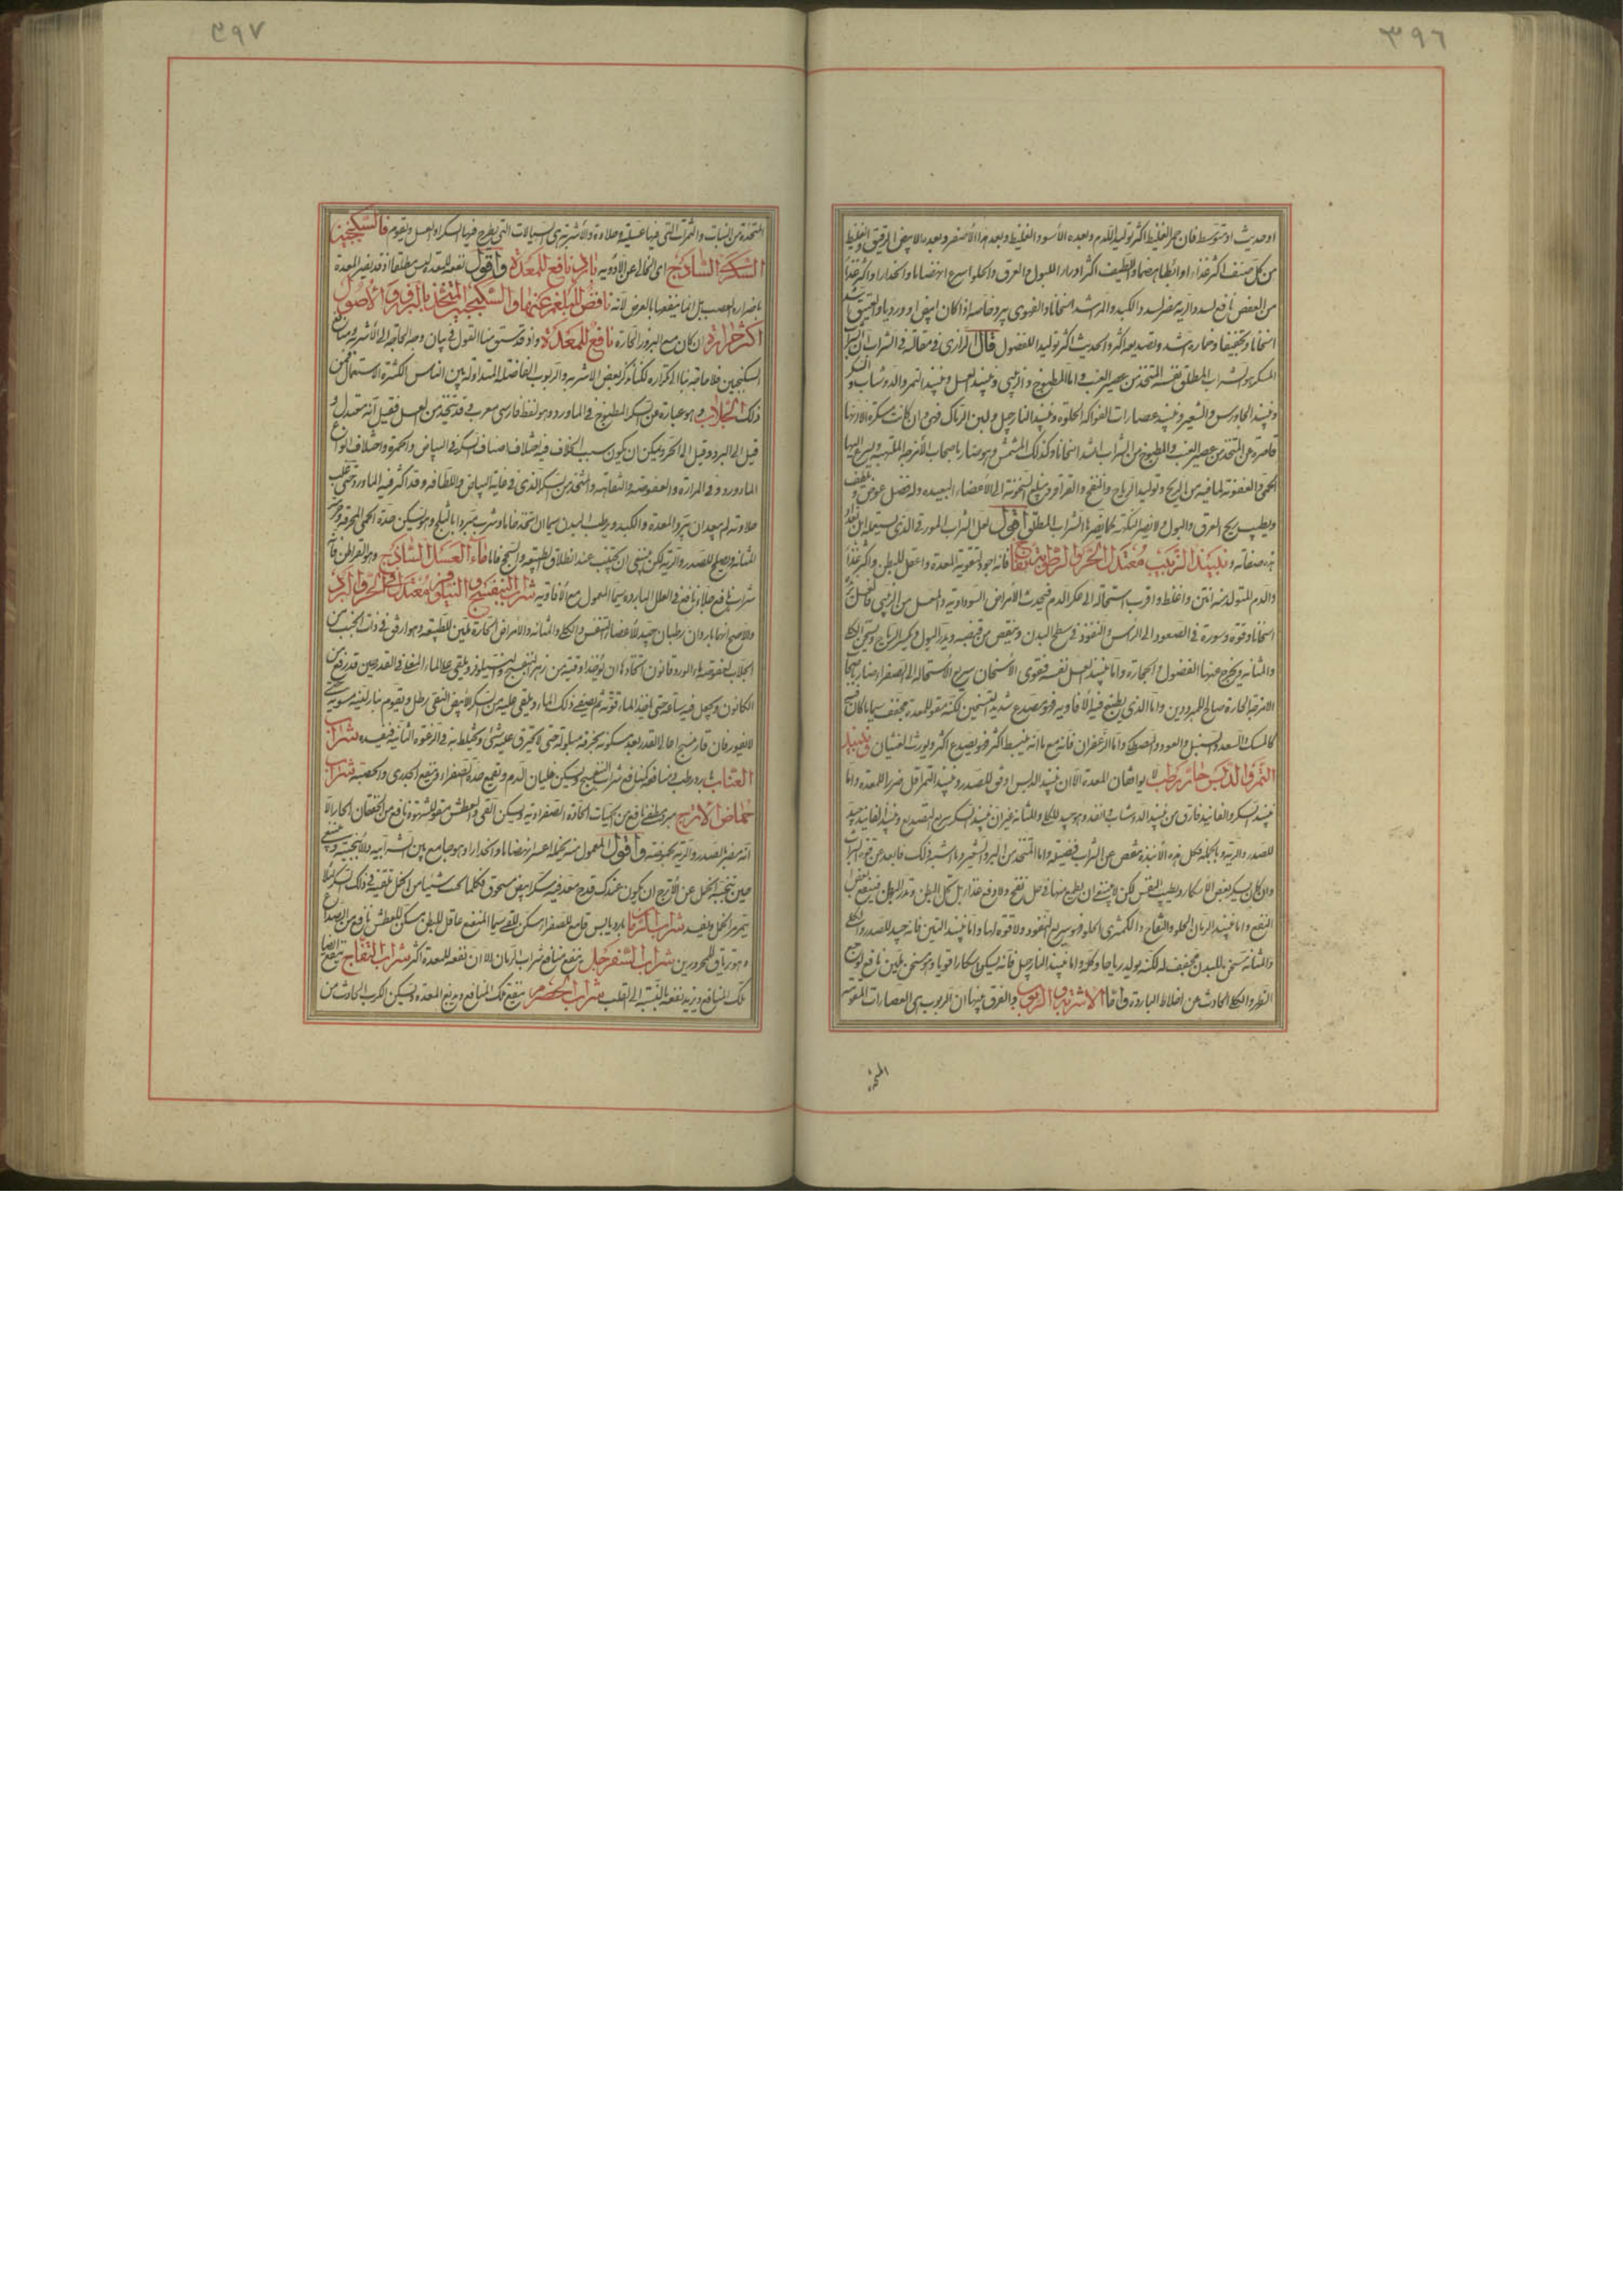 ٣٩٦
او حديث او متوسط فان حمر الغليظ اكثر توليدا للدم وبعده الأسود الغليظ وبعد هذا الأصفر وبعده الابيض الرقيق الغليظ
من كل صنف اكثر غذاء وابطأ هضما واللطيف اكثر ادرارا للبول والعرق والحلو اسرع انهضاما وانحدارا واكثر غذاء
من العفص نافع لسدد الرية مضر لسدد الكبد والمر اشد اسخانا
اسخانا وتجفيفا وخماره اشد وتصديعه اكثر والحديث اكثر توليدا للفضول قال الرازى فى مقالته فى الشراب ان
المسكر هو الشراب المطلق نفسه المتخذ من عصير العنب واما المطبوخ والزبيبى ونبيذ العسل ونبيذ التمر والدوشاب والسكر
ونبيذ الجاورس والشعير ونبيذ عصارات الفواكه الحلوة ونبيذ النارجيل ولبن الرماك فهى وان كانت مسكرة الا انها
قاصرة عن المتخذ من عصير العنب والمطبوخ من الشراب اشد اسخانا وكذلك المشمس وهو ضار باصحاب الأمزجة الملتهبة
الحمى والعفونة لما فيه من الريح وتوليد الرياح والنفخ والقراقر ويبلغ السخونة الى الاعضاء البعيدة وله فضل غوص
ويطيب ريح العرق والبول ولا يضر النكهة كما يضرها الشراب المطلق اقول لعل الشراب المورد الذى
هذه صفاته ونبيذ الزبيب معتدل الحر والرطوبة فانه اجود لتقوية المعدة واعقل للبطن واكثر غذاء
والدم المتولد منه امتن واغلظ واقرب استحالة الى عكر الدم فيحدث الأمراض السوداوية والعسل من الزبيبى
اسخانا وقوة وسورة فى الصعود الى الرأس والنفوذ فى سطح البدن وينقص من قبضه ويدر البول ويكسر الرياح ويسخن الكلى
والمثانة ويخرج عنها الفضول والحجارة واما نبيذ العسل نفسه فقوى الأسخان سريع الاستحالة الى الصفراء ضار
الامزجة الحارة صالح للمبرودين واما الذى يطبخ فيه الافاويه فهو مصدع شديد التسخين لكنه مقو للمعدة مجفف سيما ما كان فيه
كالمسك والسعد والسنبل والعود والمصطكى واما الزعفران فانه مع ما انه يبسط اكثر فهو يصدع اكثر ويورث الغثيان ونبيذ
التمر والدبس حار رطب لا يوافقان المعدة الا ان نبيذ الدبس اوفق للصدر ونبيذ التمر اقل ضررا للمعدة واما
نبيذ السكر والفانيد فارق من نبيذ الدوشاب وانفذ وهو جيد للكلى والمثانة غير ان نبيذ السكر سريع التصديع ونبيذ الفانيد جيد
للصدر والرية وبالجملة فكل هذه الأنبذة تنقص عن الشراب
وان كان يسكر بعض الاسكار ويطيب النفس لكن لا ينبغى ان يطمع منها فى حل نفخ ولا دفع غذاء بل تحل البطن وتدر البول فينتفع
النقع واما نبيذ الرمان الحلو والتفاح والكمثرى الحلو فهو سريع النفوذ ولا قوة لها واما نبيذ التين فانه جيد للصدر والكلى
والمثانة مسخن للبدن مجفف له لكنه يولد رياحا وحكة واما نبيذ النارجيل فانه يسكر اسكارا قويا وهو مسخن ملين نافع لوجع
الظهر والكلى الحادث من اخلاط الباردة واما الاشربة والربوب والفرق بينها ان الربوب هى العصارات المقومة
المتخذة
٣٩٧
المتخذة من النبات والثمرات التى فيها عسلية وحلاوة والأشربة هى السيالات التى يطرح فيها السكر او العسل ويقوم فالسكنجبين
السكرى الساذج اى الخالى عن الادوية بارد نافع للمعدة واقول نفعه للمعدة ليس مطلقا اذ قد يضر المعدة
باضراره العصب بل انما ينفعها بالعرض لانه نافض للبلغم عنها والسكنجبين المتخذ بالبزور والاصول
اكثر حرارة ان كان مع البزور الحارة نافع للمعدة واذ قد سبق منا القول فى بيان وجه الحاجة الى الأشربة ومنافع
السكنجبين فلا حاجة بنا الى تكراره لكنا نذكر بعض الاشربة والربوب الفاضلة المتداولة بين الناس الكثيرة الاستعمال فمن
ذلك الجلاب وهو عبارة عن السكر المطبوخ فى الماورد وهو لفظ فارسى معرب قد يتخذ من العسل فقيل انه معتدل و
قيل الى البرد وقيل الى الحر ويمكن ان يكون سبب الخلاف فيه اختلاف اصناف السكر فى البياض والحمرة واختلاف انواع
الماورد فى المرارة والعفوصة والتفاهة والمتخذ من السكر الذى فى غاية البياض واللطافة وقد اكثر فيه الماورد حتى غلب
حلاوته لم يبعد ان يبرد المعدة والكبد ويرطب البدن سيما ان اتخذ خاما وشرب مبردا بالثلج وهو يسكن حدة الحمى المحرقة
المثانة ويصلح للصدر والرية لكن ينبغى ان يجتنب عند انطلاق الطبيعة والسحج فاما ماء العسل الساذج وهو القراطن
شراب نافع جلاء نافع فى العلل الباردة سيما المعمول مع الأفاويه شراب البنفسج والنيلوفر معتدل فى الحر والبرد
والأصح انهما باردان رطبان جيد لأعضاء التنفس والكلى والمثانة والأمراض الحارة ملين للطبيعة وهو ارفق فى ذات الجنب من
الجلاب لعفوصة ماء الورد وقانون اتخاذها ان يؤخذ اوقية من زهر البنفسج والنيلوفر ويلقى على الماء المغلى فى القدر حين قد رفع من
الكانون ويجعل فيه ساعة حتى ياخذ الماء قوته ثم يصفى ذلك الماء ويلقى عليه من السكر الأبيض النقى رطل ويقوم بنار لينة مستوية
لا تفور فان فار مسح اعالى القدر بعد سكونه بخرقة مبلولة حتى لا يحترق عليه شئ ويختلط به فى الرغوة الثانية فيفسده شراب
العناب بارد رطب ومنافعه كمنافع شراب البنفسج ويسكن غليان الدم ويقمع حدة الصفراء وينفع الجدرى والحصبة شراب
حماض الاترج مبرد مطفئ نافع من الحميات الحادة الصفراوية ويسكن القئ والعطش مقو للشهوة نافع من الخفقان الحار الا
انه يضر الصدر والرية بحموضته واقول المعمول منه بخله اعسر انهضاما وانحدارا وهو جامع بين الشرابية والأنبجية
حين تنحيه الخل عن الأترج ان يكون عندك قدح معد فيه سكر ابيض مسحوق فكلما سحبت شيئا من الخل تلقيه فى ذلك السكر لئلا
يتمرر الخل ويفسد شراب الرمان بارد يابس قامع للصفراء مسكن للقئ سيما المنعنع عاقل للبطن مسكن للعطش نافع من الصداع
وهو ترياق للمحرورين شراب السفرجل ينفع منافع شراب الرمان الا ان نفعه للمعدة اكثر شراب التفاح ينفع ايضا
تلك المنافع ويزيد نفعه بالنسبة الى القلب شراب الحصرم ينفع تلك المنافع ويدبغ المعدة ويسكن الكرب الحادث من